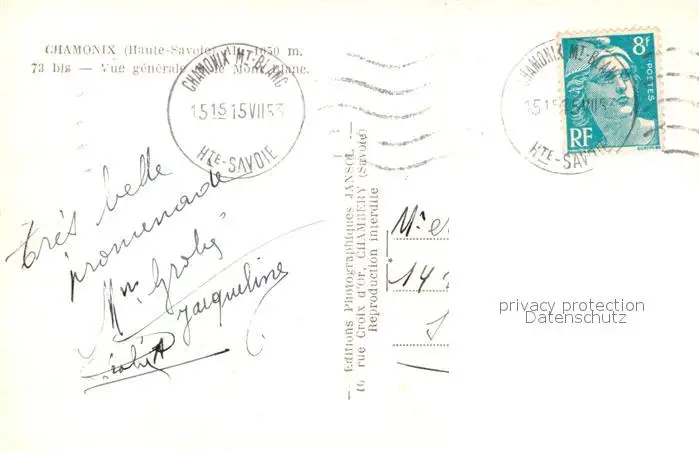 CHAMONIX (Haute-Savoie) Alt. 1050 m.
73 bis — Vue générale et le Mont-Blanc.
CHAMONIX MT-BLANC
1515 15 VII 53
HTE-SAVOIE
CHAMONIX MT-BLANC
1515 15 VII 53
HTE-SAVOIE
8f
POSTES
RF
très belle
promenade
Jacqueline
— Editions Photographiques JANSOL —
10 rue Croix d'Or, CHAMBERY (Savoie)
Reproduction interdite
Mr e
14
privacy protection
Datenschutz